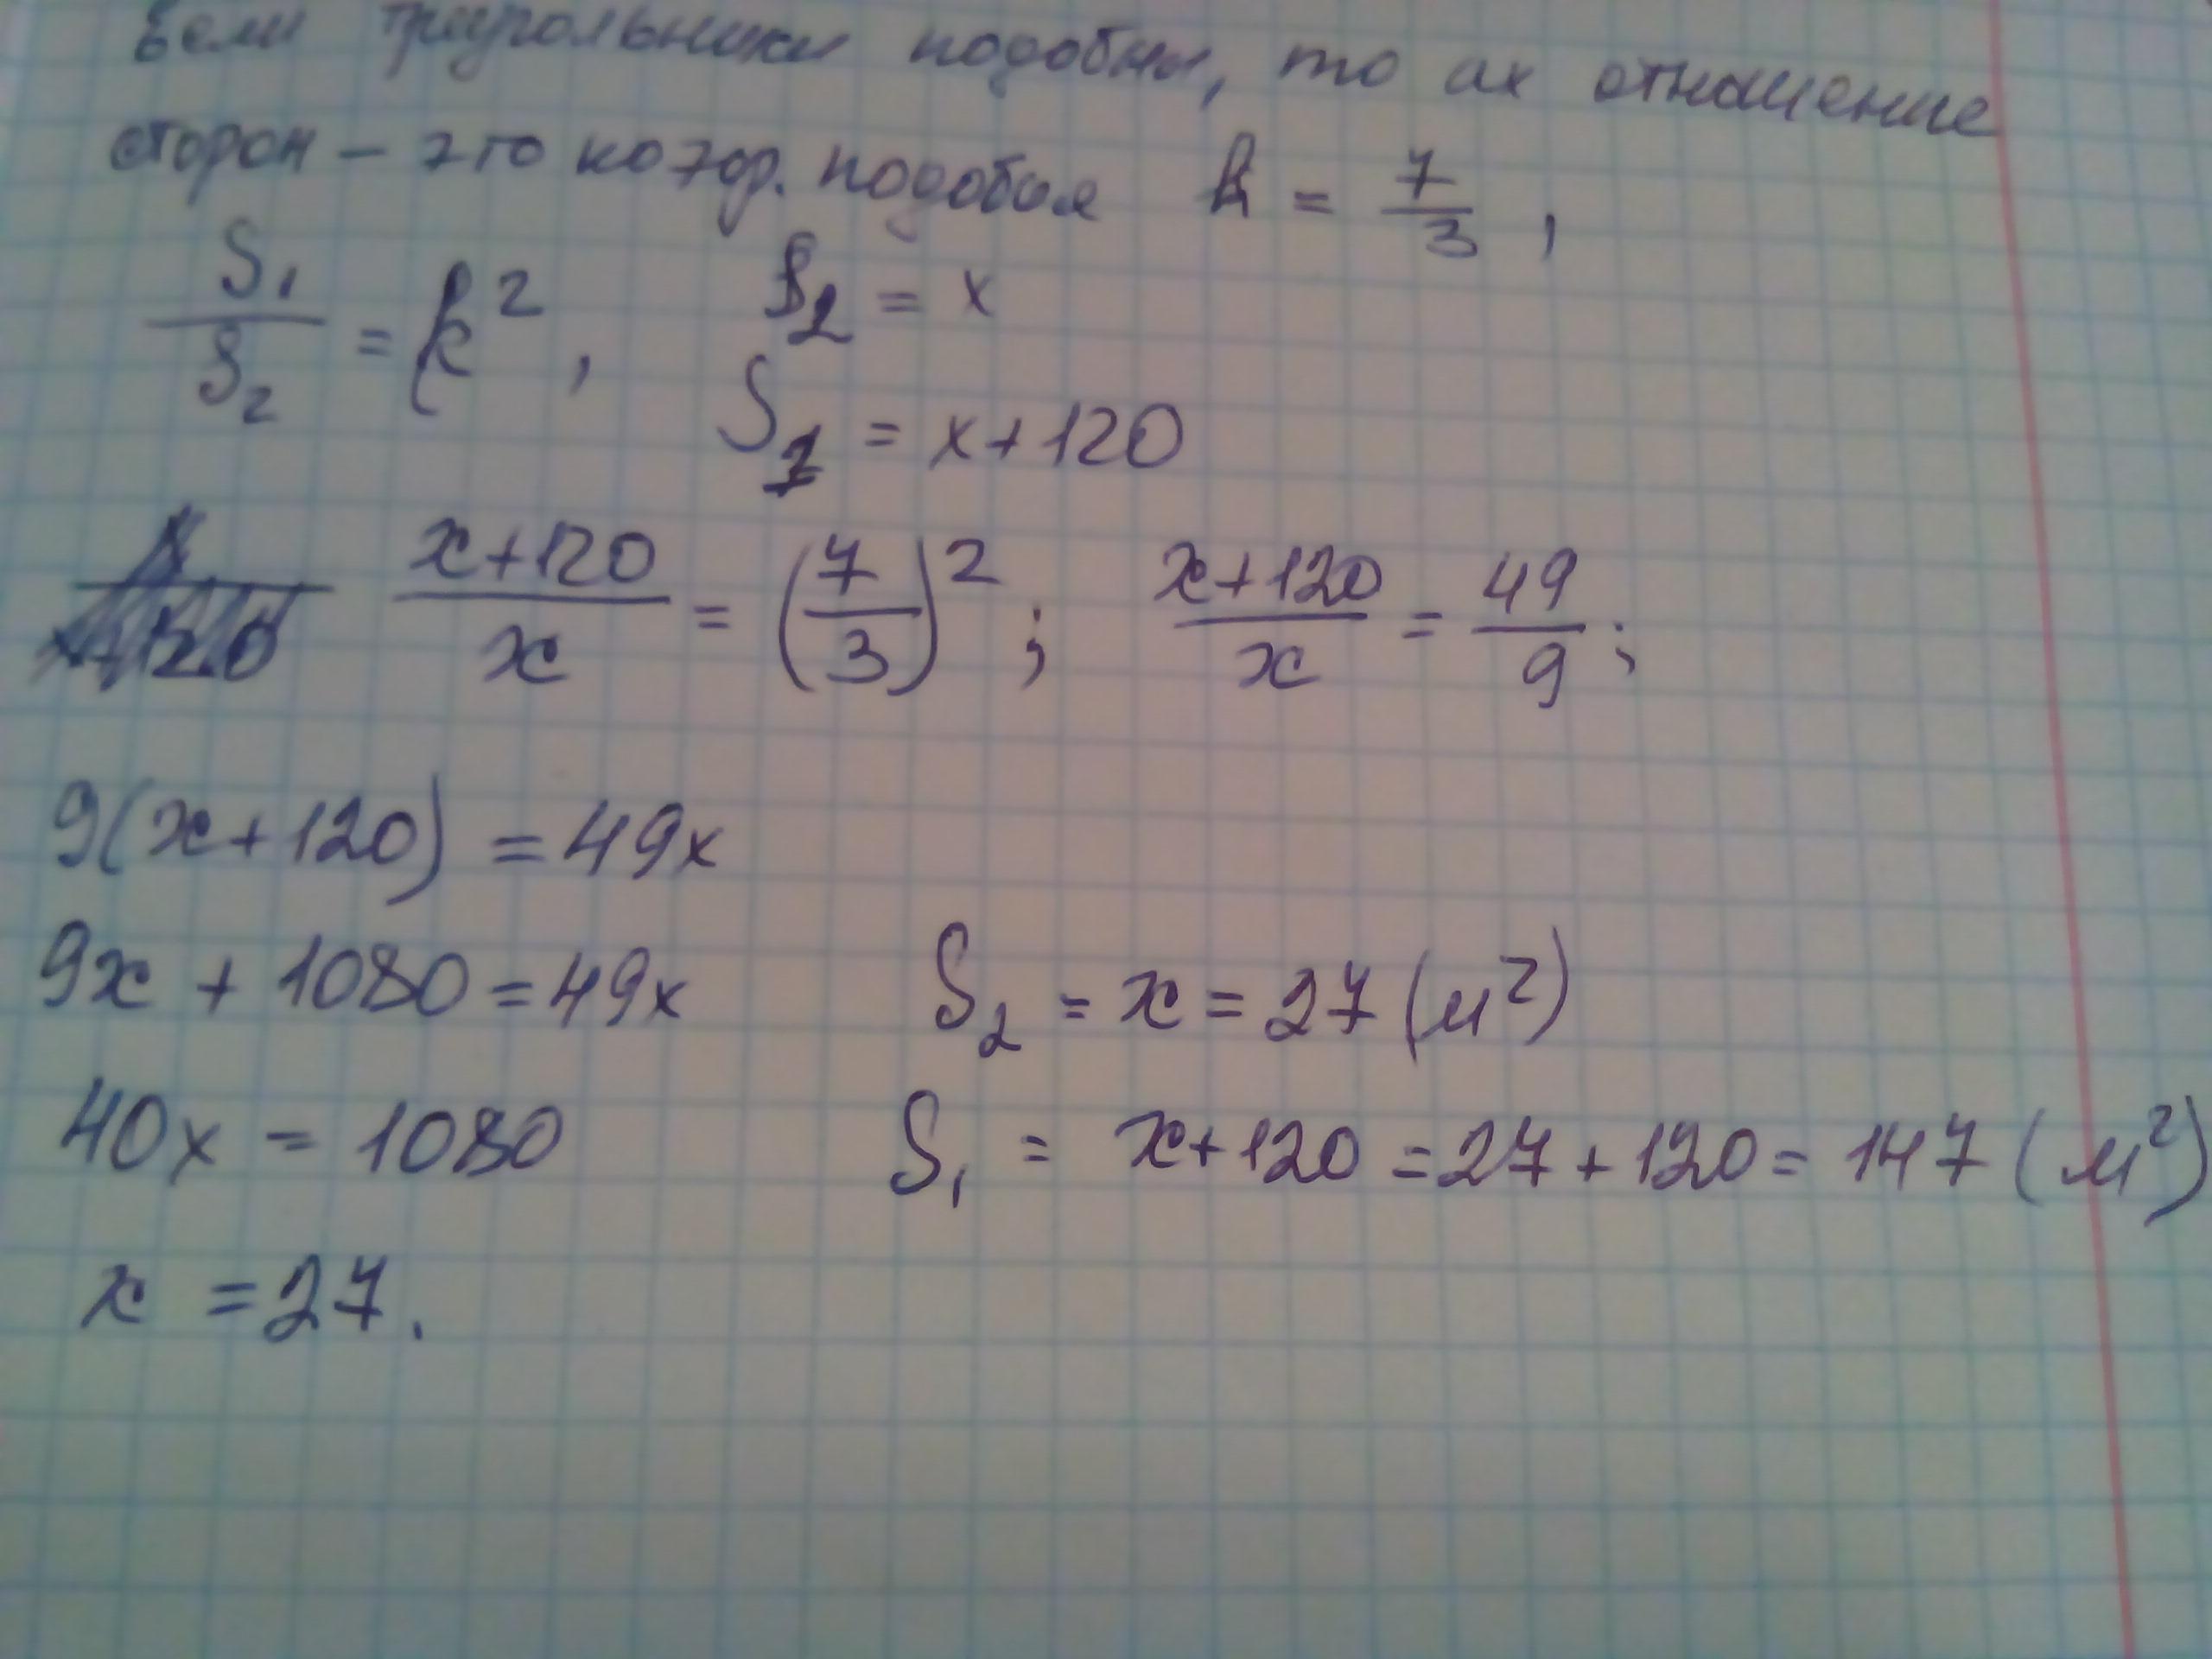 Если треугольники подобны, то их отношение
сторон – это коэф. подобия k = 7/3 ,
S₁/S₂ = k² , S₂ = x
S₁ = x+120
(x+120)/x = (7/3)² ; (x+120)/x = 49/9 ;
9(x+120) = 49x
9x + 1080 = 49x S₂ = x = 27 (м²)
40x = 1080 S₁ = x+120 = 27+120 = 147 (м²)
x = 27.